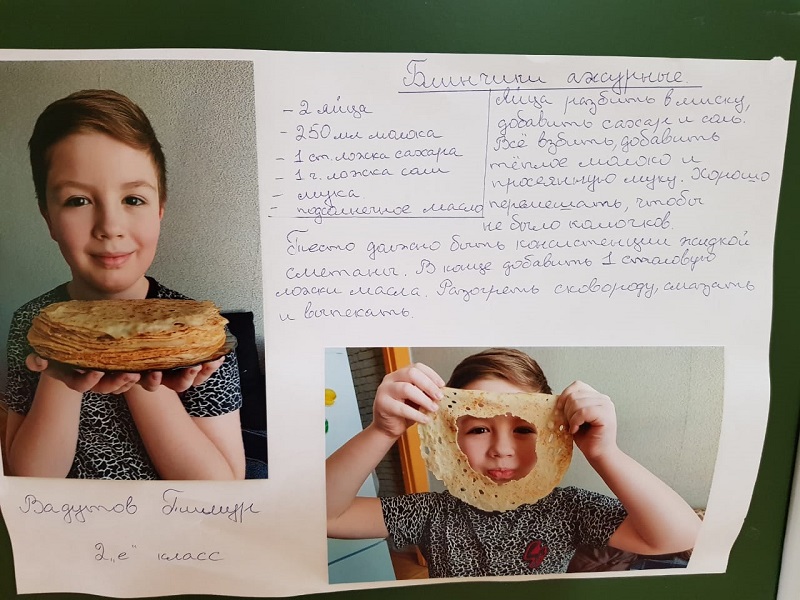 Блинчики ажурные.
- 2 яйца
- 250 мл молока
- 1 ст. ложка сахара
- 1 ч. ложка соли
- мука
- подсолнечное масло
Яйца разбить в миску,
добавить сахар и соль.
Всё взбить, добавить
тёплое молоко и
просеянную муку. Хорошо
перемешать, чтобы
не было комочков.
Тесто должно быть консистенции жидкой
сметаны. В конце добавить 1 столовую
ложки масла. Разогреть сковороду, смазать
и выпекать.
Вадутов Тимур
2 "е" класс